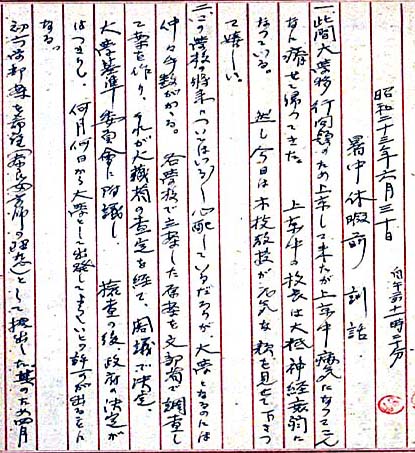 昭和二十三年六月三十日
自午前十一時二十分
暑中休暇前 訓話
一、此間大学移行問題のため上京して来たが上京中病気になってこん
なん瘠せて帰ってきた。上京中の校長は大抵神経衰弱に
なっている。然し今日は本校教授が元気な顔を見せて下さつ
て嬉しい。
二、この学校の将来についてはいろ〳〵心配しているだろうが、大学となるのには
仲々手数がかゝる。各学校で立案した原案を文部省で調査し
て案を作り、それが大蔵省の査定を経て、閣議で決定、
大学基準委員会に附議し、検査の後政府の決定が
はつきりし、何月何日から大学として出発してよろしいとの許可が出るもん
なる。
初め本部案を希望(奈良女高師の理想)として提出した其のため四月